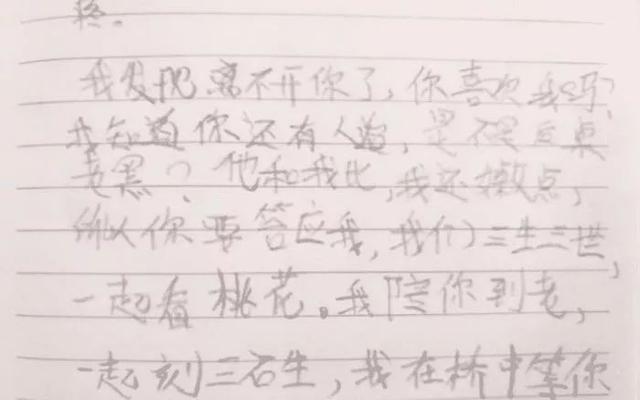 疼。
我发现离不开你了,你喜欢我吗?
我知道你还有人追,是不是后桌
姜黑?他和我比,我还嫩点,
所以你要答应我,我们三生三世,
一起看桃花。我陪你到老,
一起刻三石生,我在桥中等你